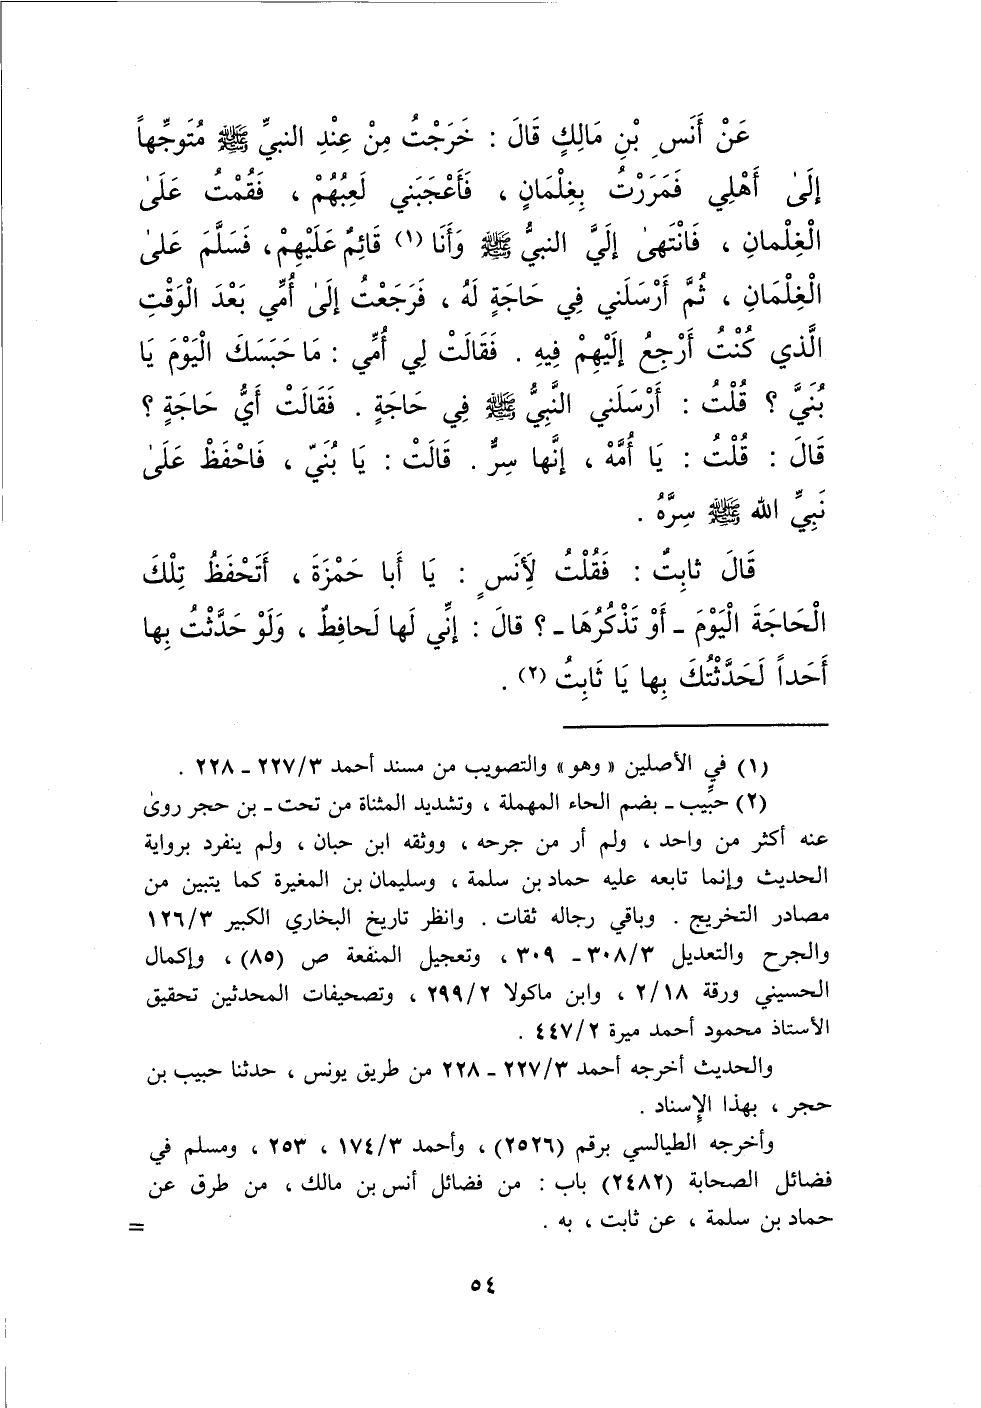 عَنْ أَنَسِ بْنِ مَالِكٍ قَالَ : خَرَجْتُ مِنْ عِنْدِ النبيِّ ﷺ مُتَوجِّهاً
إلَىٰ أَهْلِي فَمَرَرْتُ بِغِلْمَانٍ ، فَأَعْجَبَني لَعِبُهُمْ ، فَقُمْتُ عَلَىٰ
الْغِلْمانِ ، فَانْتَهىٰ إلَيَّ النبيُّ ﷺ وَأَنَا (١) قَائِمٌ عَلَيْهِمْ، فَسَلَّمَ عَلىٰ
الْغِلْمَانِ ، ثُمَّ أَرْسَلَني فِي حَاجَةٍ لَهُ ، فَرَجَعْتُ إلَىٰ أُمِّي بَعْدَ الْوَقْتِ
الَّذي كُنْتُ أَرْجِعُ إلَيْهِمْ فِيهِ . فَقَالَتْ لِي أُمِّي : مَا حَبَسَكَ الْيَوْمَ يَا
بُنَيَّ ؟ قُلْتُ : أَرْسَلَني النَّبيُّ ﷺ فِي حَاجَةٍ . فَقَالَتْ أَيُّ حَاجَةٍ ؟
قَالَ : قُلْتُ : يَا أُمَّهْ ، إنَّها سِرٌّ . قَالَتْ : يَا بُنَيّ ، فَاحْفَظْ عَلَىٰ
نَبِيِّ الله ﷺ سِرَّهُ .
قَالَ ثابِتٌ : فَقُلْتُ لِأَنَسٍ : يَا أَبا حَمْزَةَ ، أَتَحْفَظُ تِلْكَ
الْحَاجَةَ الْيَوْمَ ـ أَوْ تَذْكُرُهَا ـ ؟ قالَ : إنِّي لَها لَحافِظٌ ، وَلَوْ حَدَّثْتُ بِها
أَحَداً لَحَدَّثْتُكَ بِها يَا ثَابِتُ (٢) .
(١) في الأصلين «وهو» والتصويب من مسند أحمد ٢٢٧/٣ ـ ٢٢٨ .
(٢) حبِّيب ـ بضم الحاء المهملة ، وتشديد المثناة من تحت ـ بن حجر روىٰ
عنه أكثر من واحد ، ولم أر من جرحه ، ووثقه ابن حبان ، ولم ينفرد برواية
الحديث وإنما تابعه عليه حماد بن سلمة ، وسليمان بن المغيرة كما يتبين من
مصادر التخريج . وباقي رجاله ثقات . وانظر تاريخ البخاري الكبير ١٢٦/٣
والجرح والتعديل ٣٠٨/٣ ـ ٣٠٩ ، وتعجيل المنفعة ص (٨٥) ، وإكمال
الحسيني ورقة ٢/١٨ ، وابن ماكولا ٢٩٩/٢ ، وتصحيفات المحدثين تحقيق
الأستاذ محمود أحمد ميرة ٤٤٧/٢ .
والحديث أخرجه أحمد ٢٢٧/٣ ـ ٢٢٨ من طريق يونس ، حدثنا حبيب بن
حجر ، بهذا الإِسناد .
وأخرجه الطيالسي برقم (٢٥٢٦) ، وأحمد ١٧٤/٣ ، ٢٥٣ ، ومسلم في
فضائل الصحابة (٢٤٨٢) باب : من فضائل أنس بن مالك ، من طرق عن
حماد بن سلمة ، عن ثابت ، به . =
٥٤